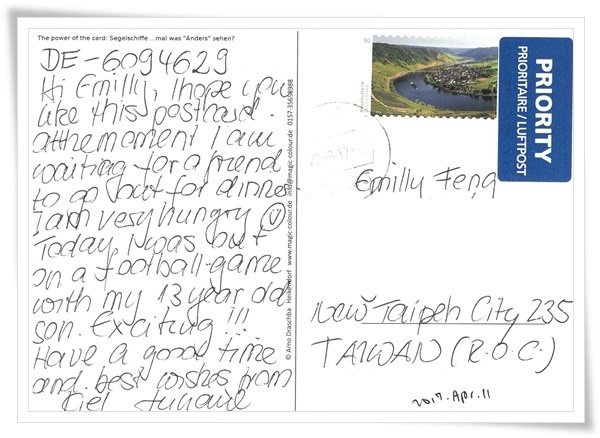 The power of the card: Segelschiffe ...mal was "Anders" sehen?
DE-6094629
Hi Emilly, I hope you
like this postcard.
at the moment I am
waiting for a friend
to go out for dinner.
I am very hungry
Today I was out
on a football-game
with my 13 year old
son. Exciting!!!
Have a good time
and best wishes from
Kiel
© Arno Draschba Heikendorf www.magic-colour.de info@magic-colour.de 0157-35698988
90
PRIORITY
PRIORITAIRE / LUFTPOST
Emilly Feng
New Taipeh City 235
TAIWAN (R.O.C.)
2017. Apr. 11